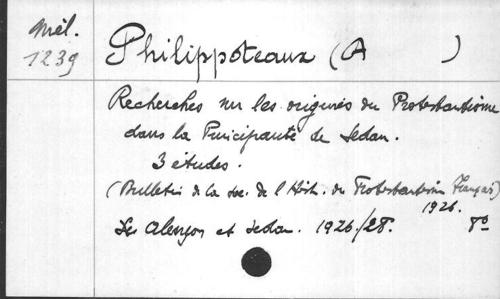 Mél.
1239
Philippoteaux (A )
Recherches sur les origines du Protestantisme
dans la Principauté de Sedan.
3 études.
(Bulletin de la Soc. de l'Hist. du Protestantisme Français)
1926.
et Sedan. 1926/28. 8º